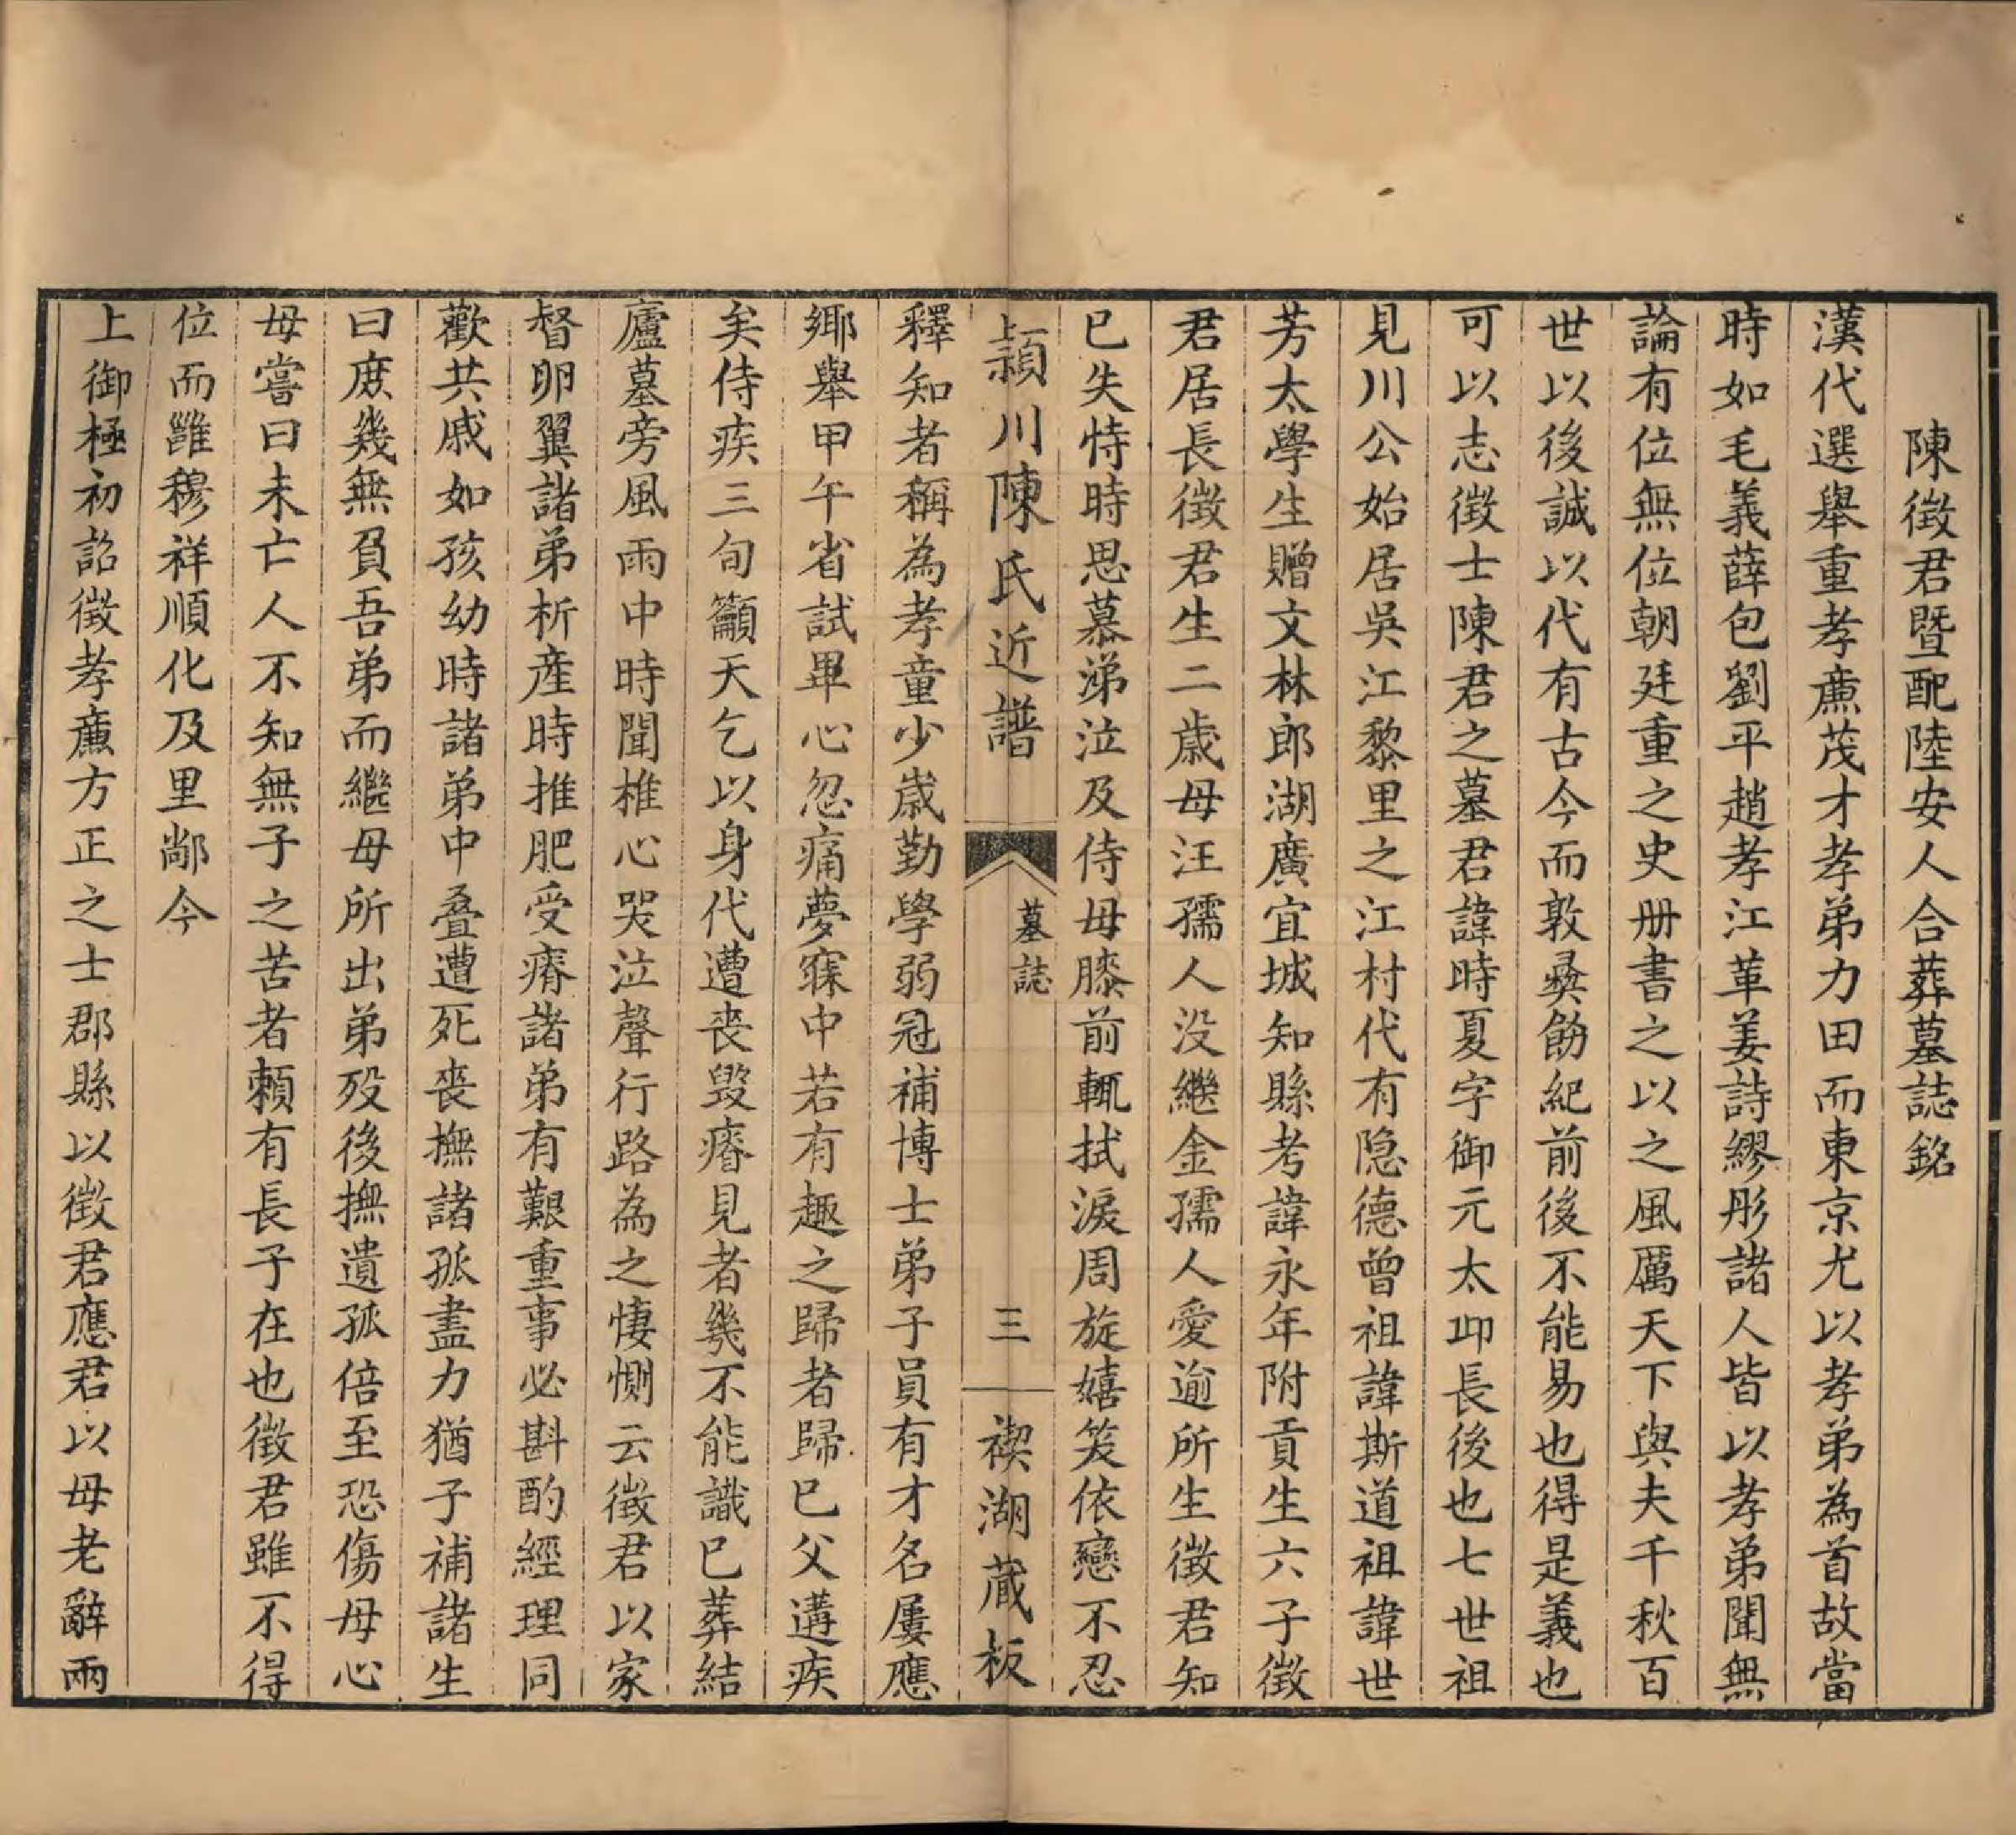 陳徵君暨配陸安人合葬墓誌銘
漢代選舉重孝廉茂才孝弟力田而東京尤以孝弟為首故當
時如毛義薛包劉平趙孝江革姜詩繆彤諸人皆以孝弟聞無
論有位無位朝廷重之史册書之以之風厲天下與夫千秋百
世以後誠以代有古今而敦彝飭紀前後不能易也得是義也
可以志徵士陳君之墓君諱時夏字御元太丘長後也七世祖
見川公始居吳江黎里之江村代有隐德曾祖諱斯道祖諱世
芳太學生贈文林郎湖廣宜城知縣考諱永年附貢生六子徵
君居長徵君生二歲母汪孺人没繼金孺人愛逾所生徵君知
已失恃時思慕涕泣及侍母膝前輒拭淚周旋嬉笑依戀不忍
潁川陳氏近譜
墓誌
三
禊湖藏板
釋知者稱為孝童少歲勤學弱冠補博士弟子員有才名屢應
鄉舉甲午省試畢心忽痛夢寐中若有趣之歸者歸已父遘疾
矣侍疾三旬籲天乞以身代遭丧毀瘠見者幾不能識已葬結
廬墓旁風雨中時聞椎心哭泣聲行路為之悽惻云徵君以家
督卵翼諸弟析産時推肥受瘠諸弟有艱重事必斟酌經理同
歡共戚如孩幼時諸弟中叠遭死丧撫諸孤盡力猶子補諸生
曰庶幾無負吾弟而繼母所出弟殁後撫遺孤倍至恐傷母心
母嘗曰未亡人不知無子之苦者賴有長子在也徵君雖不得
位而雝穆祥順化及里鄰今
上御極初詔徵孝廉方正之士郡縣以徵君應君以母老辭兩